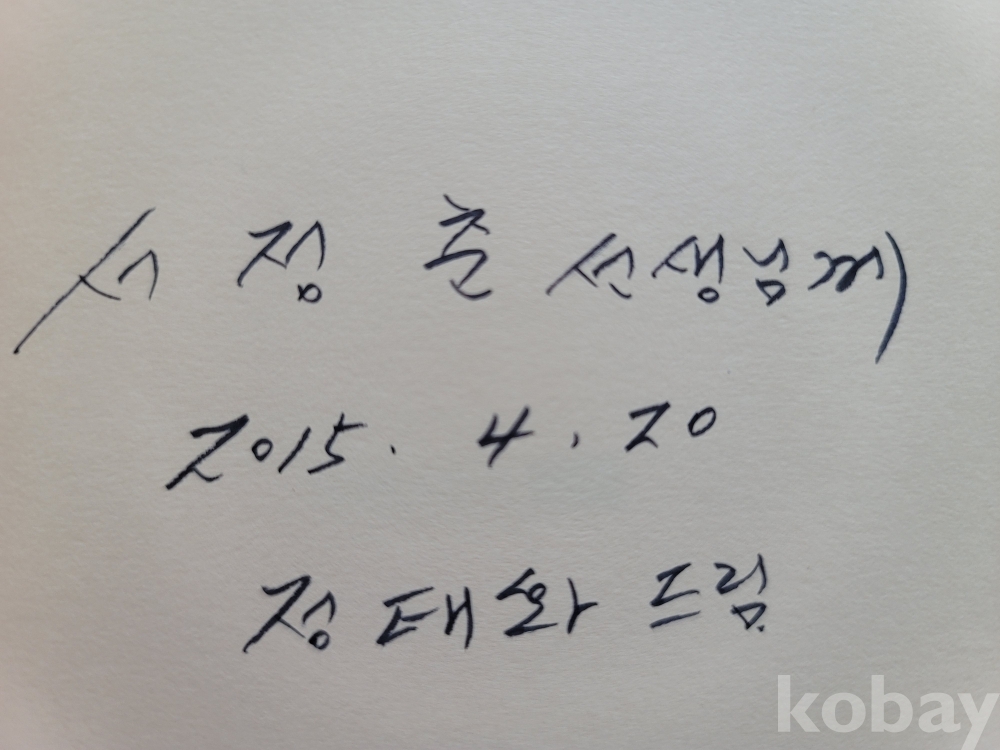 서정춘 선생님께
2015. 4. 20
정태화 드림
kobay